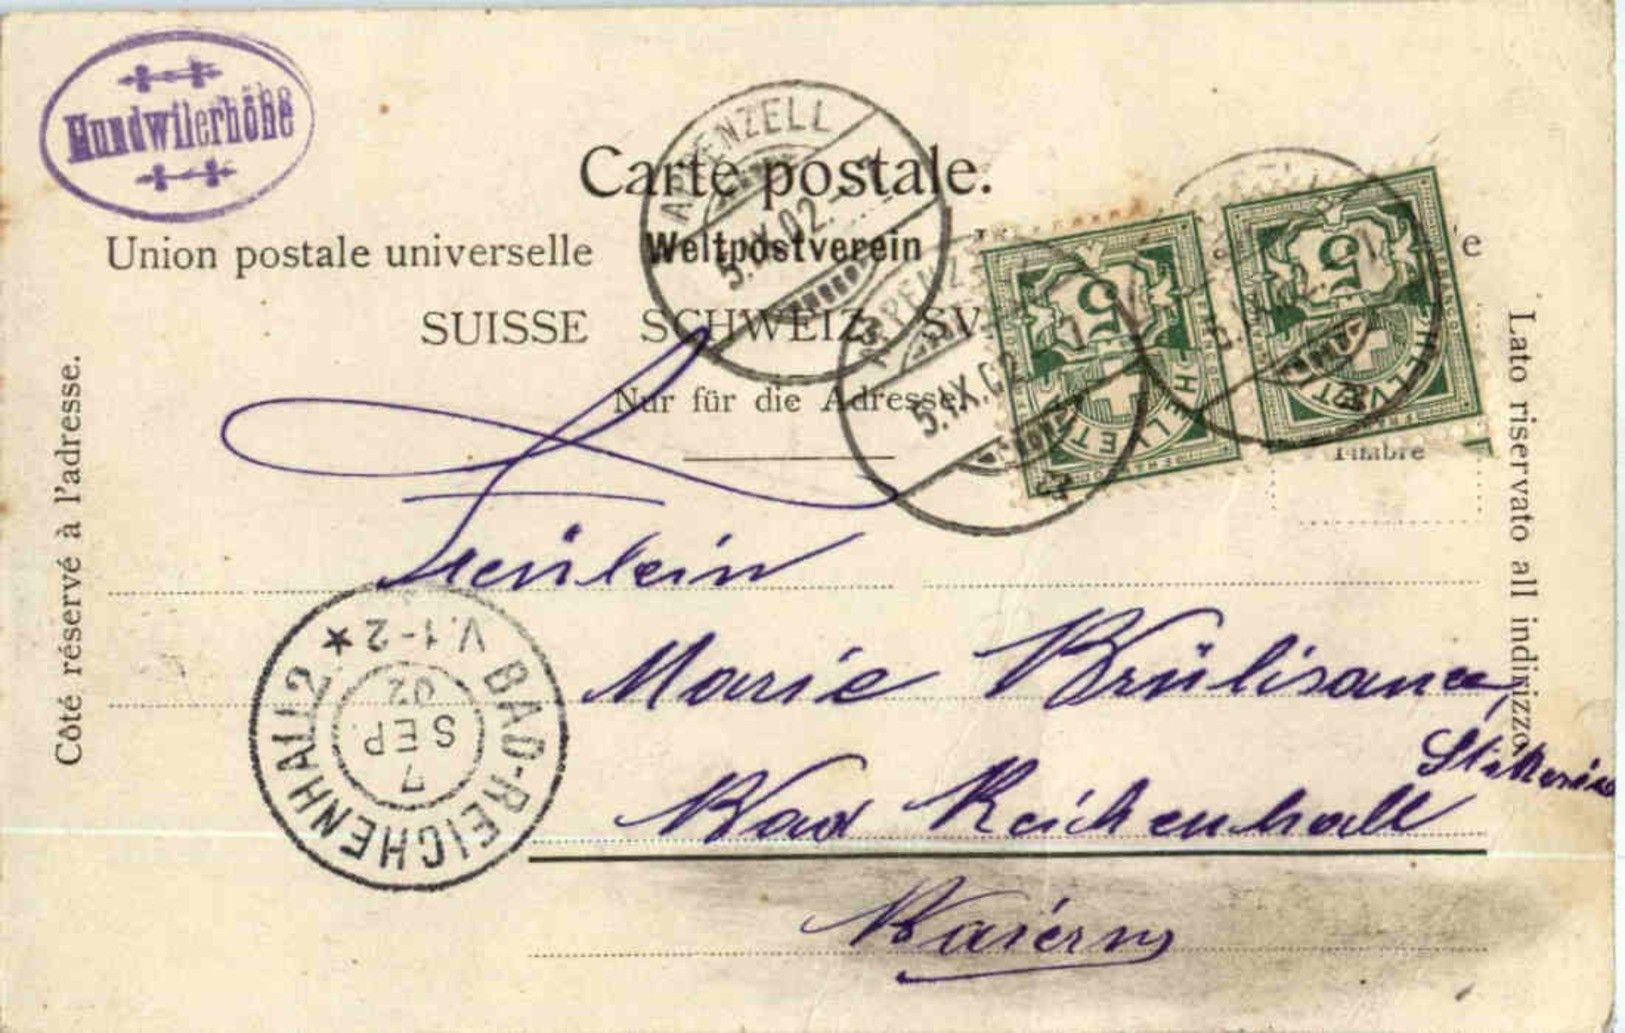 Hundwilerhöhe
APPENZELL
5.IX.02.
Carte postale.
Union postale universelle Weltpostverein
SUISSE SCHWEIZ SV
Nur für die Adresse.
Timbre
5
HELVETIA
5
HELVETIA
APPENZELL
5.IX.02
Côté réservé à l'adresse.
Lato riservato all indirizzo.
Fräulein
Marie Brülisauer
Stickerin
Bad Reichenhall
Baiern
BAD-REICHENHALL 2
7
SEP.
02
V.1-2